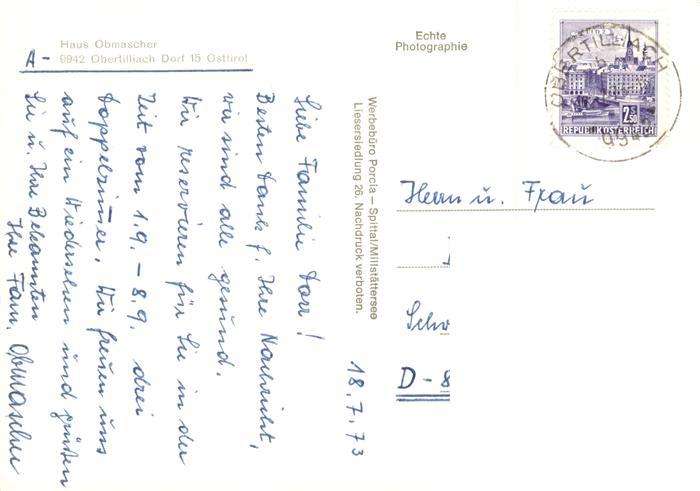 Haus Obmascher
A - 9942 Obertilliach Dorf 15 Osttirol
Echte
Photographie
OBERTILLIACH
994
2.50
REPUBLIK ÖSTERREICH
Werbebüro Porcia – Spittal/Millstättersee
Liesersiedlung 26. Nachdruck verboten.
18.7.73
Liebe Familie Dorr!
Besten Dank f. Ihre Nachricht,
wir sind alle gesund.
Wir reservieren für Sie in der
Zeit vom 1.9. – 8.9. drei
Doppelzimmer. Wir freuen uns
auf ein Wiedersehen und grüßen
Sie u. Ihre Bekannten
Ihre Fam. Obmascher
Herrn u. Frau
Schw
D - 8